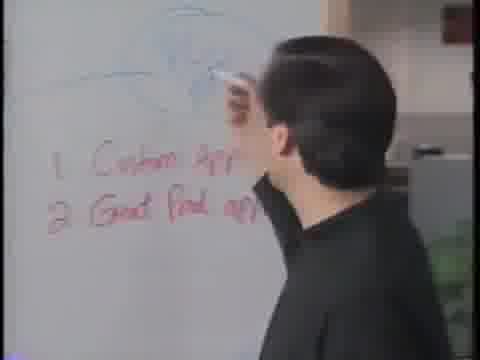 1 Custom App
2 Great Prod app